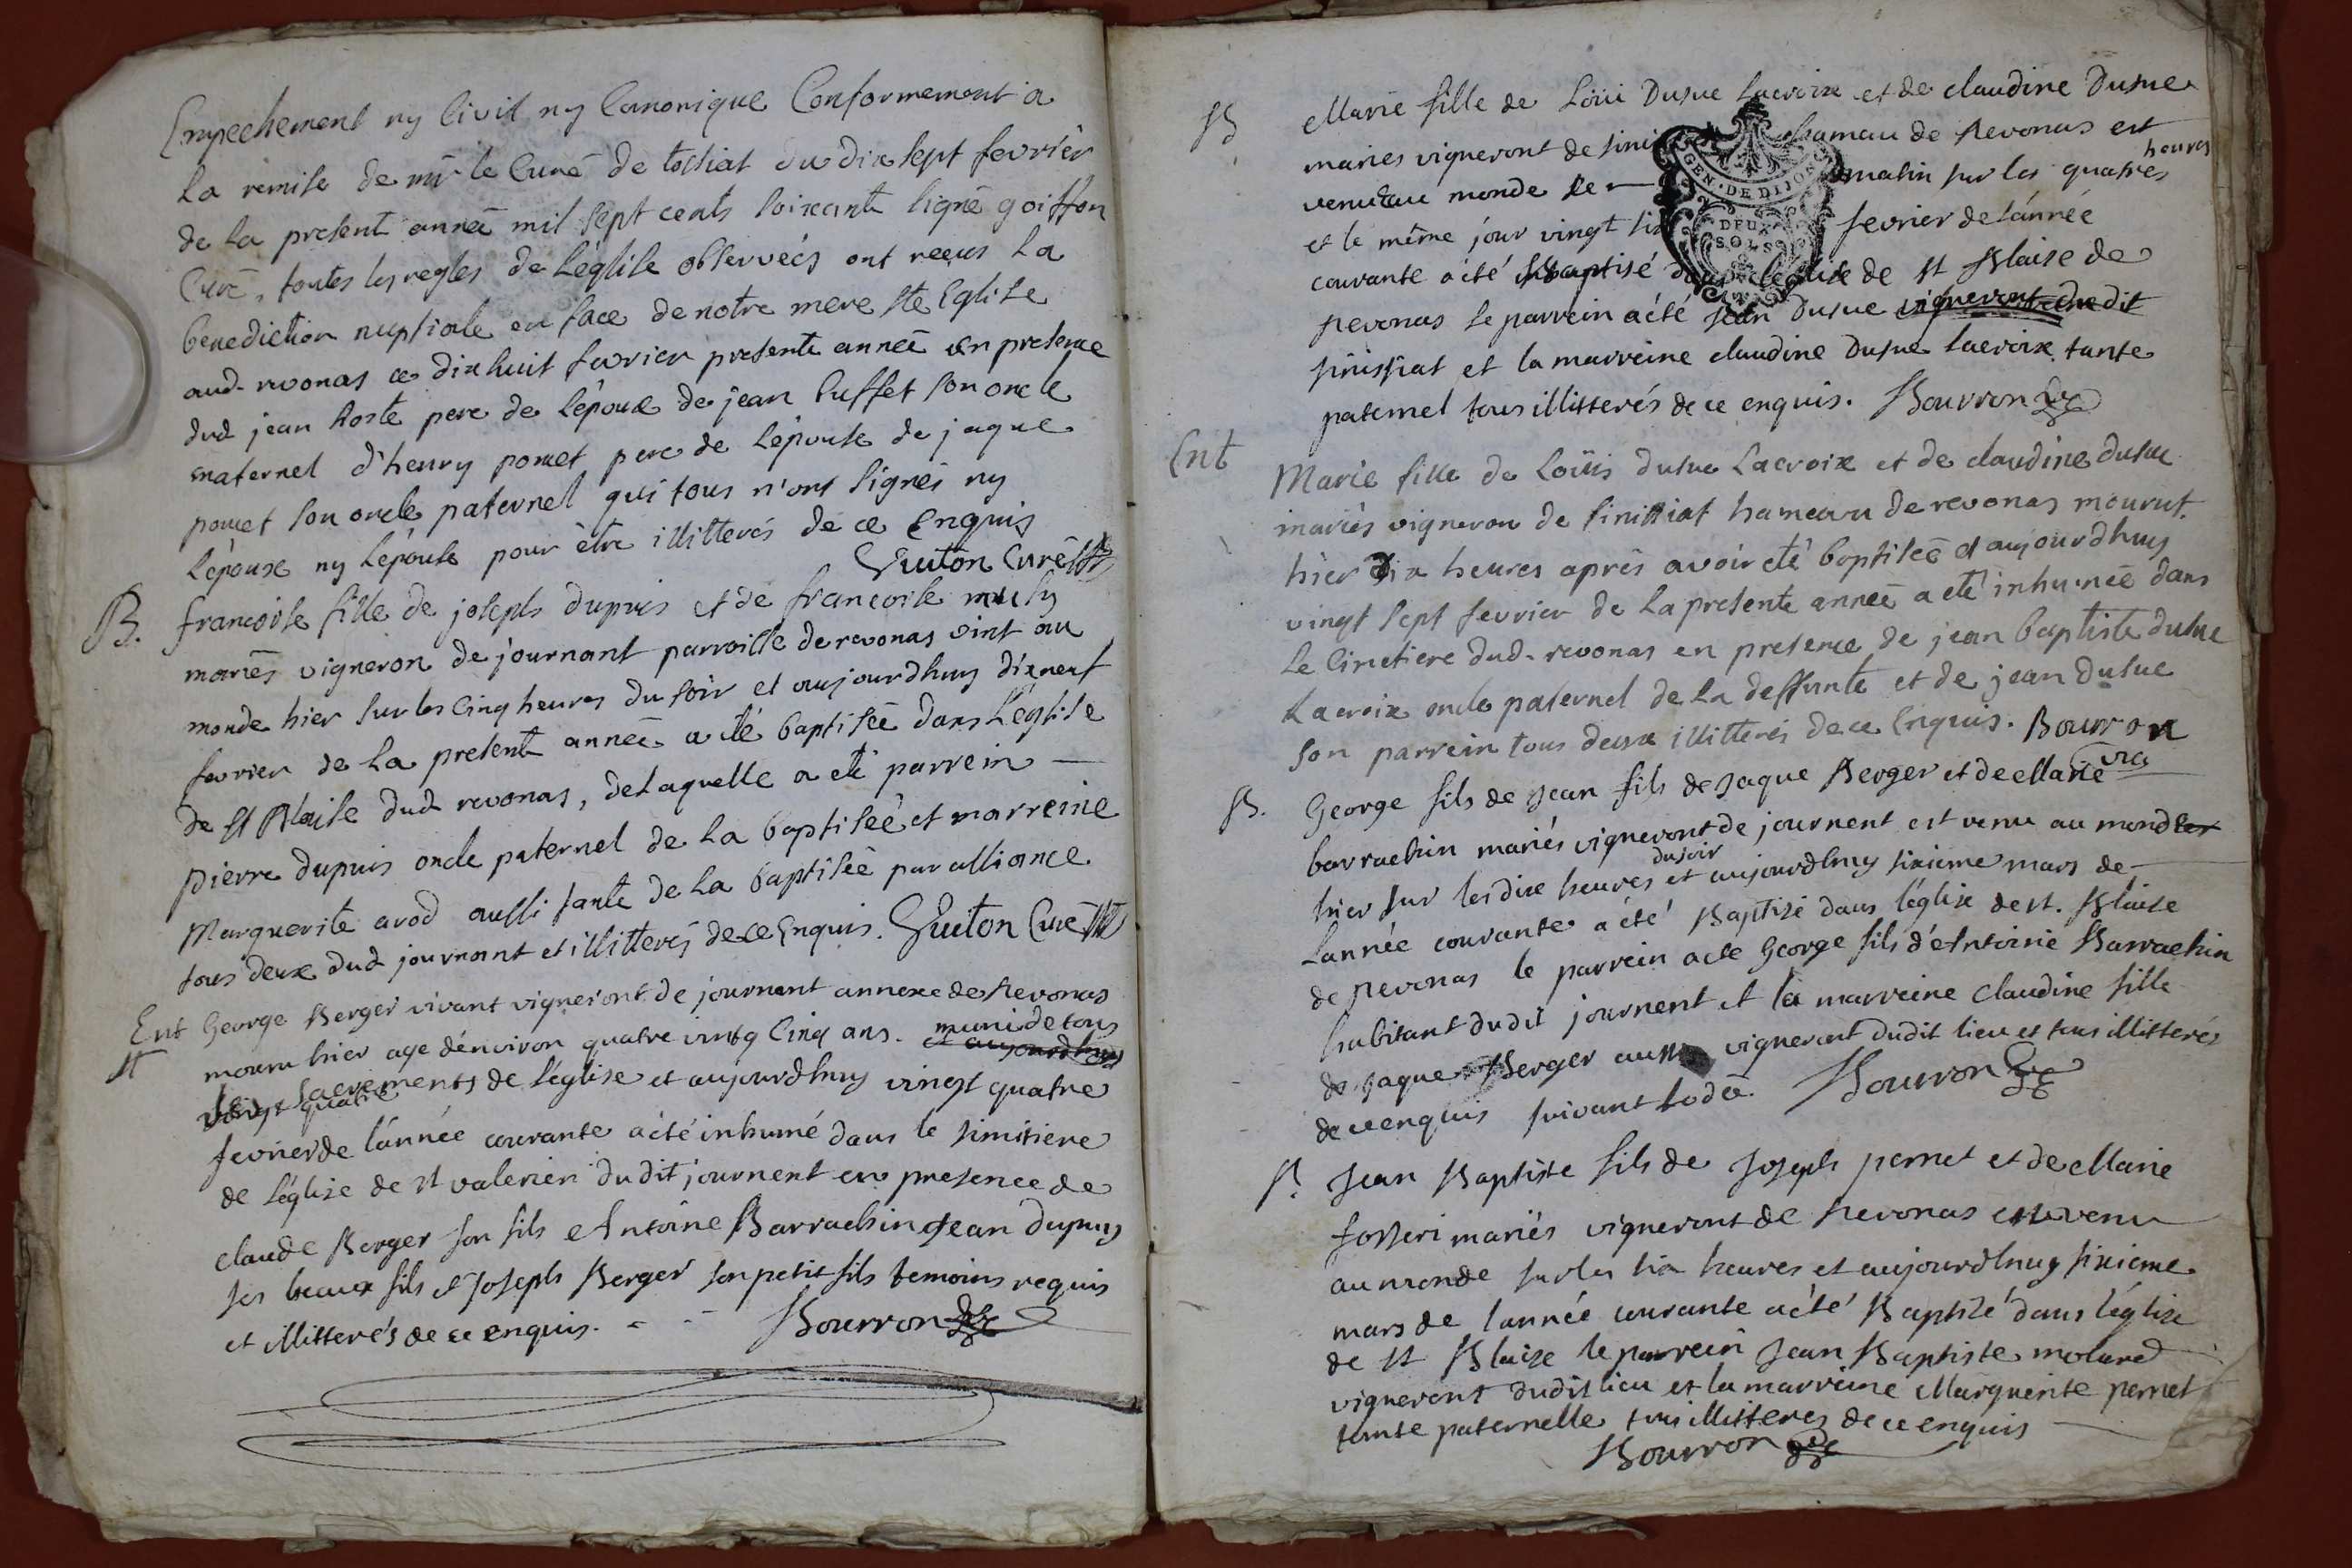 Empechement ny Civil ny Canonique Conformement a
La remise de mr le Curé de tossiat du dix sept fevrier
de La present anneé mil sept cents soixante signé goiffon
Curé, toutes les regles de L'eglise observeés ont receus La
benediction nuptiale en face de notre mere ste Eglise
aud. revonas ce dix huit fevrier presente anneé en presence
dud jean Roste pere de L'époux de jean buffet son oncle
maternel d'henry ponet pere de L'épouse de jaque
ponet son oncle paternel qui tous n'ont signés ny
L'époux ny L'épouse pour être illitterés de ce Enquis
Guiton Curé
B. francoise fille de joseph dupuis et de francoise
mariés vigneron de journant parroisse de revonas vint au
monde hier sur les Cinq heures du soir et aujourdhuy dixneuf
fevrier de La present anneé a été baptiseé dans L'eglise
de st Blaise dud revonas, de Laquelle a eté parrein
pierre dupuis oncle paternel de La baptiseé et marreine
Marguerite avod aussi tante de La baptiseé par alliance
tous deux dud journant et illitterés de ce Enquis. Guiton Curé
Ent George Berger vivant vigneront de journant annexe de Revonas
mouru hier age dénviron quatre vintg Cinq ans. et aujourdhuy muni de tous
vingt quatre les sacrements de léglise et aujourdhuy vingt quatre
fevrier de lánnée courante a été inhumé dans le simitiere
de léglise de st valerien dudit journent en presence de
claude Berger son fils Antoine Barrachin Jean dupuy
ses beaux fils et Joseph Berger son petit fils temoins requis
et illitterés de ce enquis. Bourron
B Marie fille de Loüi Dusue Lacroix et de claudine Dusue
mariés vigneront de hamau de Revonas est
venu au monde le matin sur les quatres heures
et le même jour vingt six fevrier de lánnée
courante a été Baptisé dans léglise de st Blaise de
revonas le parrein a été Jean Dusue vigneront dudit
sinissiat et la marreine claudine Dusue Lacroix tante
paternel tous illitterés de ce enquis. Bourron
GEN. DE DIJON
DEUX
SOLS
Ent Marie fille de Loüis dusue Lacroix et de claudine dusue
mariés vigneron de sinissiat hameau de revonas mourut
hier dix heures aprés avoir eté baptiseé et aujourdhuy
vingt sept fevrier de La presente anneé a eté inhumeé dans
Le Cimetiere dud. revonas en presence de jean baptiste dusue
Lacroix oncle paternel de La deffunte et de jean dusue
son parrein tous deux illitterés de ce Enquis. Bourron
vic
B. George fils de Jean fils de Jaque Berger et de Marie
barrachin mariés vigneront de journent est venu au monde
hier sur les dix heures du soir et aujourdhuy sixieme mars de
lannée courante a été Baptisé dans léglise de st. Blaise
de revonas le parrein a cte George fils dAntoine Barrachin
habitant dudit journent et la marreine claudine fille
de Jaque Berger aussi vigneront dudit lieu et tous illitterés
de ce enquis suivant lodce. Bourron
B. Jean Baptiste fils de Joseph pernet et de Marie
mariés vigneront de Revonas est venu
au monde sur les six heures et aujourdhuy sixieme
mars de lannée courante a été Baptisé dans léglise
de st Blaise le parrein Jean Baptiste molard
vigneront dudit lieu et la marreine Marguerite pernet
tante paternelle tous illitteres de ce enquis
Bourron